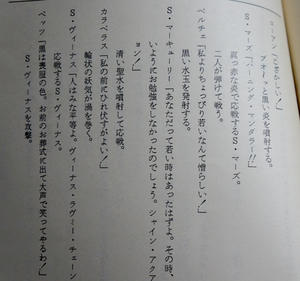 コーアン「こざかしい！」
ブオーッと黒い炎を噴射する。
Ｓ・マーズ「バーニング・マンダラー!!」
真っ赤な炎で応戦するＳ・マーズ。
二人が弾けて戦う。
ベルチェ「私よりちょっぴり若いなんて憎らしい！」
黒い水玉を発射する。
Ｓ・マーキュリー「あなただって若い時はあったはずよ。その時、
いようにお勉強をしなかったのでしょう。シャイン・アクア
ョン！」
清い聖水を噴射して応戦。
カラベラス「私の前にひれ伏すがよい！」
輪状の妖気が渦を巻く。
Ｓ・ヴィーナス「人はみな平等よ。ヴィーナス・ラヴミー・チェーン
応戦するＳ・ヴィーナス。
ペッツ「黒は喪服の色。お前のお葬式に出て大声で笑ってやるわ！」
Ｓ・ヴィーナスを攻撃。